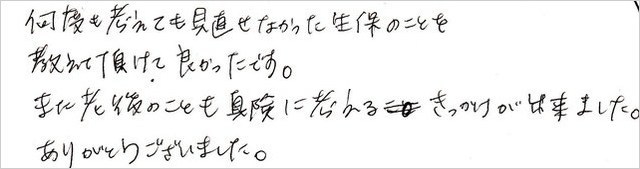 何度も考えても見直せなかった生保のことを
教えて頂けて良かったです。
また老後のことも真険に考えるきっかけが出来ました。
ありがとうございました。